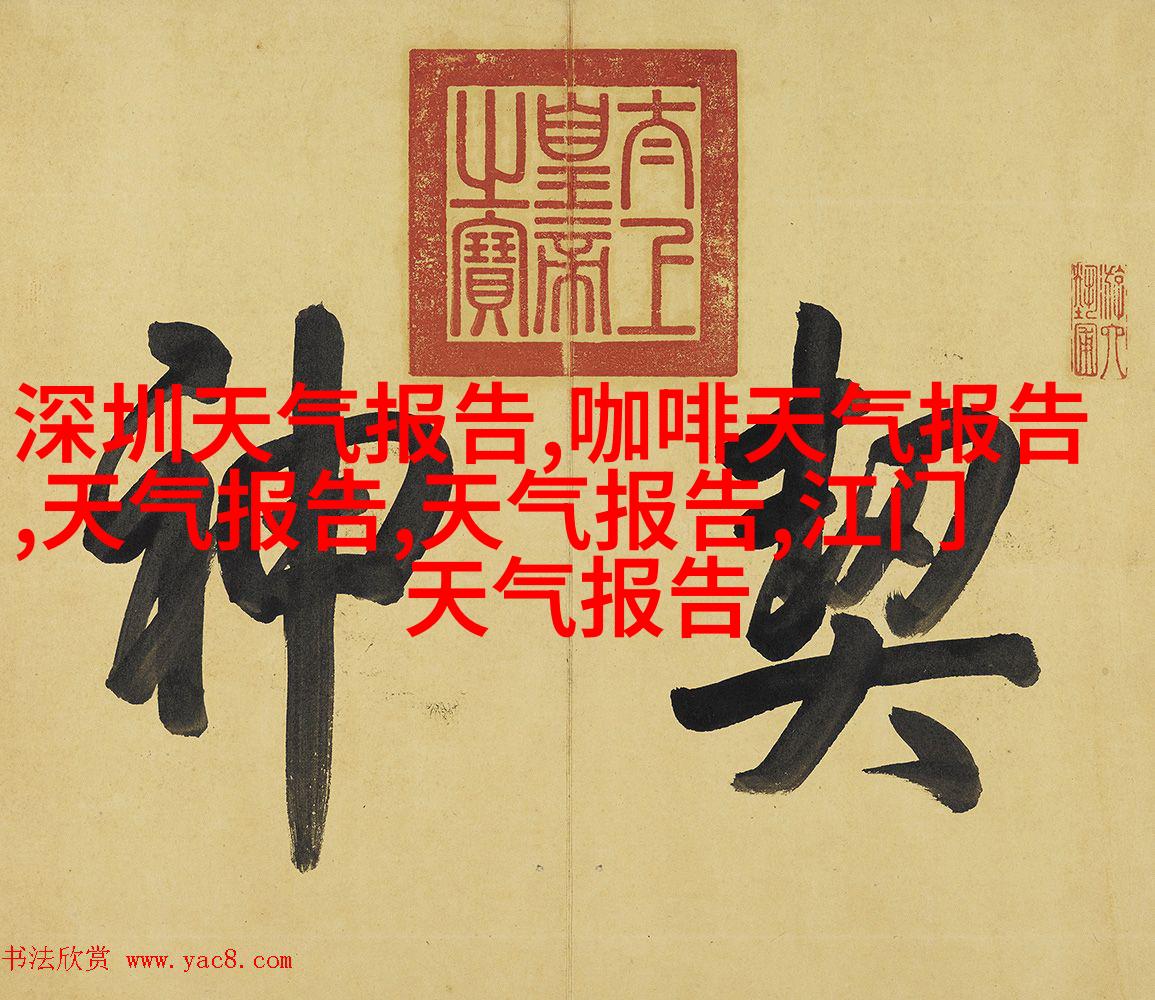 太上
皇帝
之寶
游六
藝圃
契神
深圳天气报告,咖啡天气报告
,天气报告,天气报告,江门
天气报告
书法欣赏 www.yac8.com